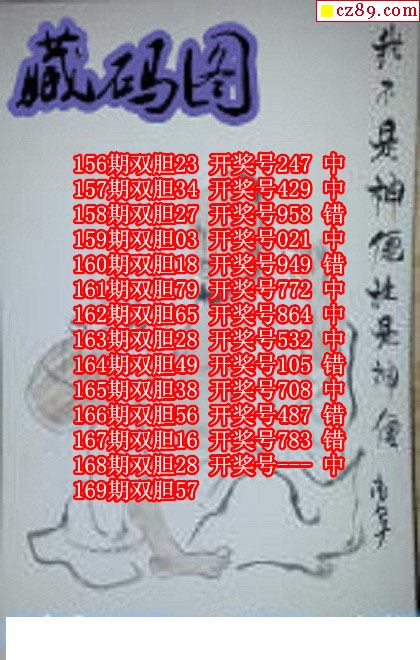 cz89.com
藏码图
我不是神
但壮是神
156期双胆23 开奖号247 中
157期双胆34 开奖号429 中
158期双胆27 开奖号958 错
159期双胆03 开奖号021 中
160期双胆18 开奖号949 错
161期双胆79 开奖号772 中
162期双胆65 开奖号864 中
163期双胆28 开奖号532 中
164期双胆49 开奖号105 错
165期双胆38 开奖号708 中
166期双胆56 开奖号487 错
167期双胆16 开奖号783 错
168期双胆28 开奖号--- 中
169期双胆57